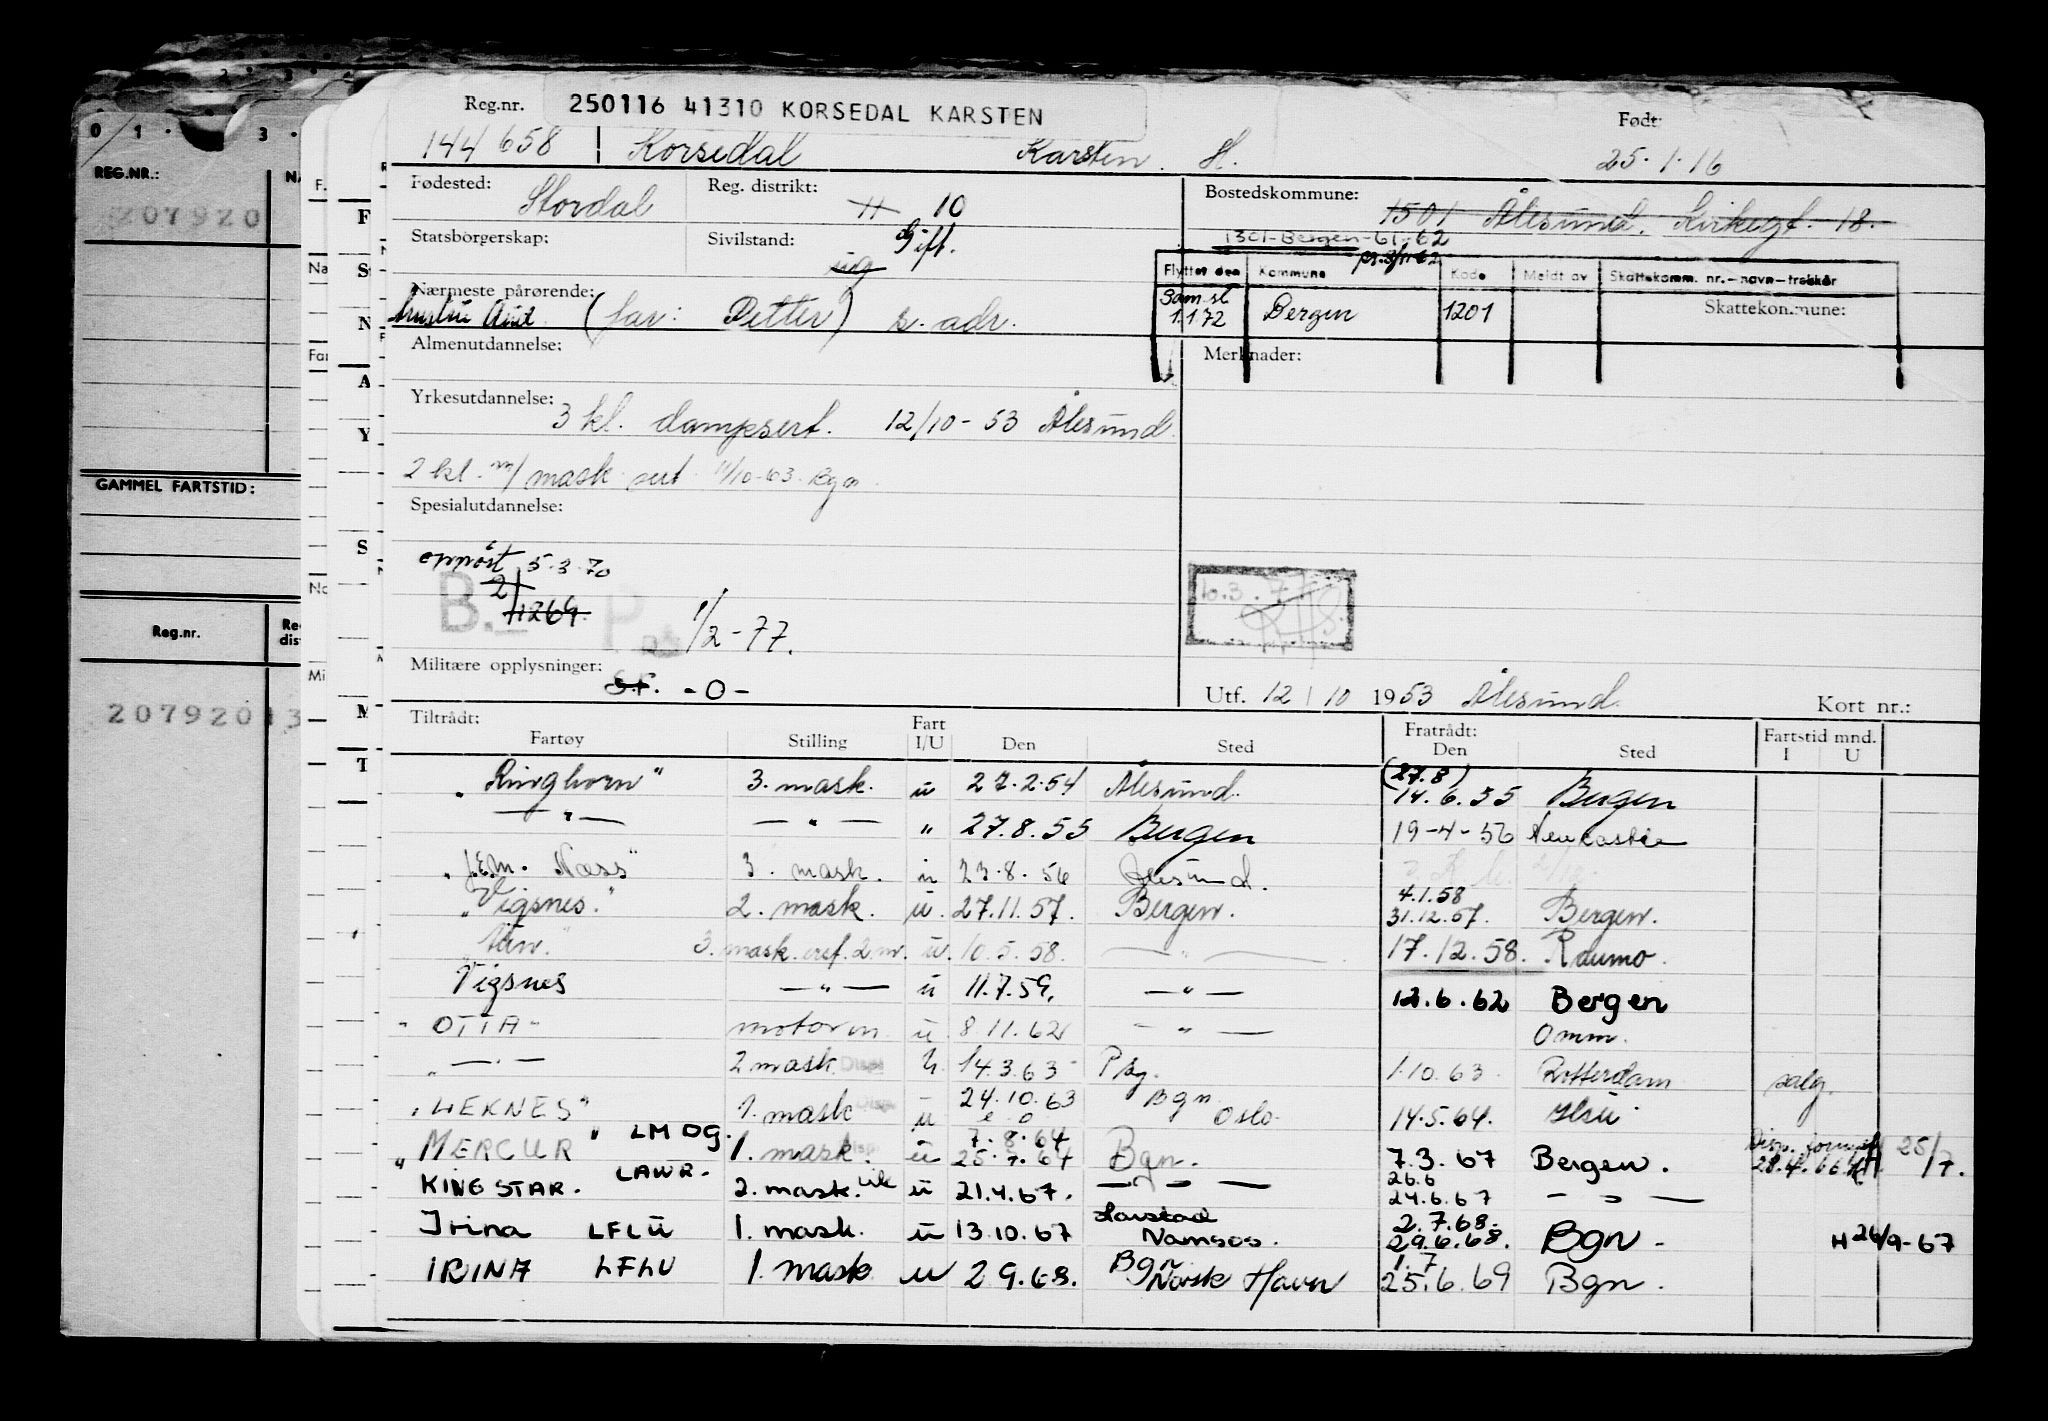 Reg.nr. 250116 41310 KORSEDAL KARSTEN Født:
144 658 Korsedal Karsten H. 25.1.16
0 1 . 3 .
REG.NR.:
207920
GAMMEL FARTSTID:
Reg.nr.
207920
Fødested: Stordal Reg. distrikt: 11 10
Bostedskommune: 1501 Ålesund. Kirkegt. 18.
1301-Bergen-61-62
Statsborgerskap: Sivilstand: ug Gift.
Flyttet den Kommune Kode Meldt av Skattekomm. nr.-navn-trekkår
Sam.st 1.1.72 Bergen 1201 Skattekommune:
Nærmeste pårørende:
(far: Petter) s. adr.
Almenutdannelse: Merknader:
Yrkesutdannelse: 3 kl. dampsert. 12/10-53 Ålesund
2 kl. m/ mask. sert. 11/10-63. Bgn
Spesialutdannelse:
5.3.70
B.
2
1269.
P
1/2-77.
10.3.77
Militære opplysninger: S.F. -0-
Utf. 12/10 1953 Ålesund. Kort nr.:
Tiltrådt: Fart Fratrådt: Fartstid mnd.
Fartøy Stilling I/U Den Sted Den Sted I U
"Ringhorn" 3. mask. u 27.2.54 Ålesund. (27.8) 14.6.55 Bergen
— " — — " — " 27.8.55 Bergen 19-4-56 Newcastle
"J.E.M. Næss" 3. mask. u 23.8.56 Ålesund.
"Vigsnes." 2. mask. u. 27.11.57. Bergen. 4.1.58 31.12.57. Bergen.
3. mask. 2.m. u. 10.5.58. — " — 17.12.58. Raumo.
Vigsnes — " — u 11.7.59. — " — 12.6.62 Bergen
"OTTA" motorm. u 8.11.62 — " — Omm.
— " — 2 mask. Disp U. 14.3.63 1.10.63. Rotterdam salg.
"LEKNES" 1. mask Disp u 24.10.63 Bgn Oslo. 14.5.64.
"MERCUR" LMDG. 1. mask. Disp. u 7.8.64 25.7.64 Bgn. 7.3.67 Bergen. 28.4.66 25/7.
KINGSTAR. LAWR. 2. mask. u 21.4.67. — " — 26.6 24.6.67 — " —
Irina LFLU 1. mask. u 13.10.67 Harstad Namsos. 2.7.68. 29.6.68. Bgn. H 26/9-67
IRINA LFLU 1. mask u 2 9.68. Bgn Norsk Havn 1.7 25.6.69 Bgn.